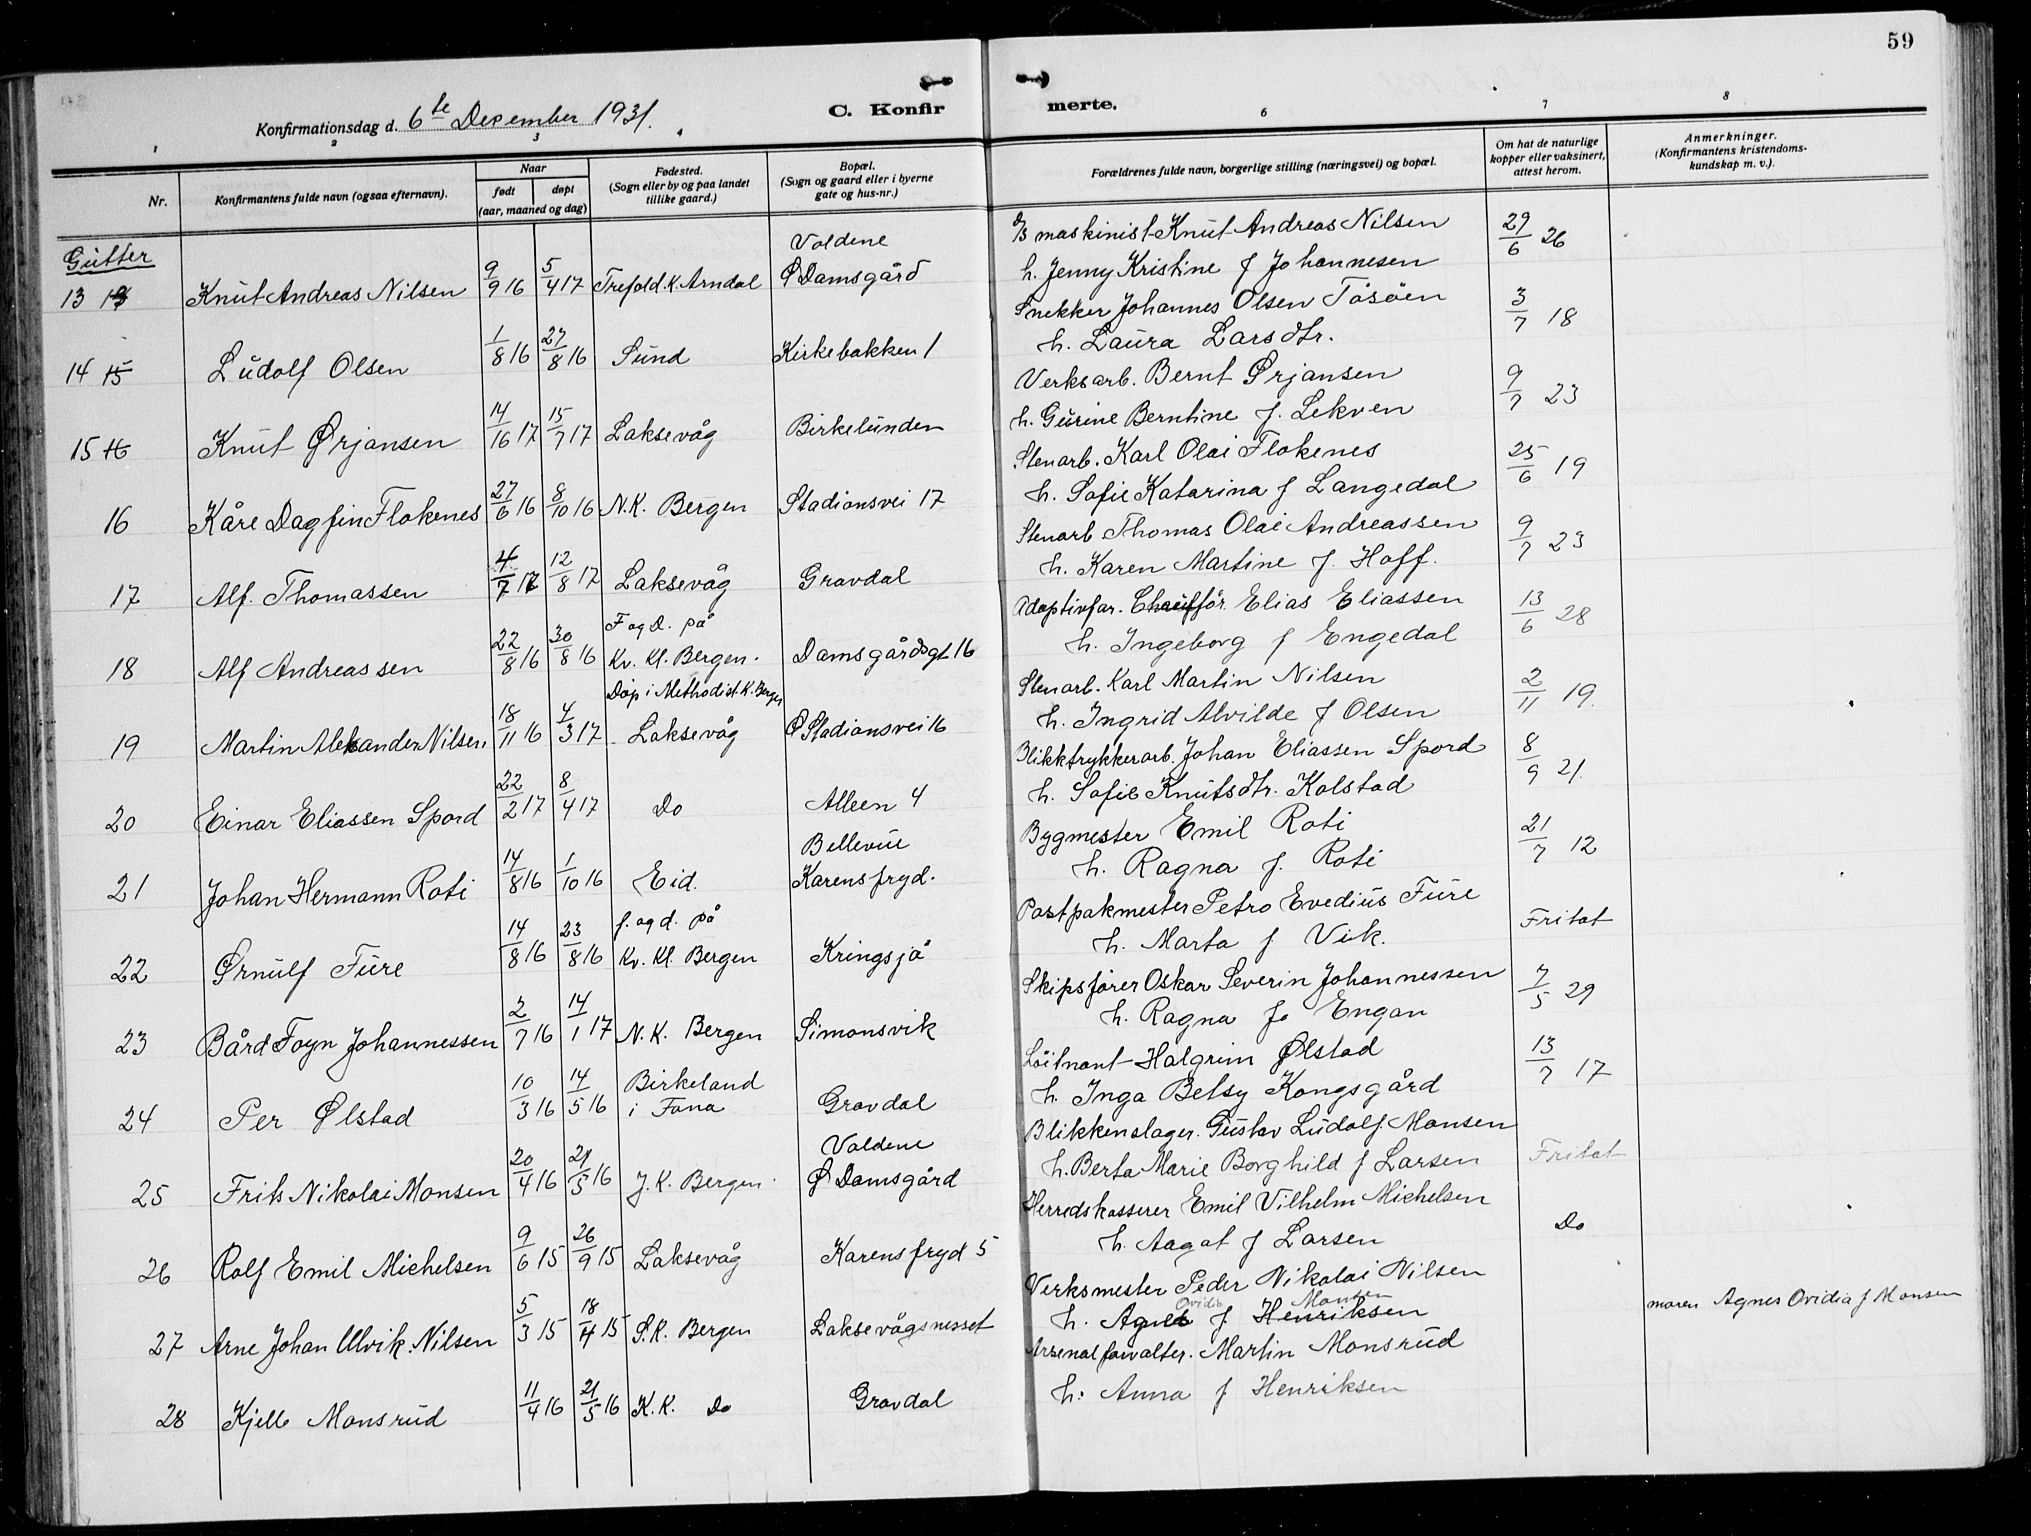 59
Konfirmationsdag d. 6te Desember 1931.
C. Konfirmerte.
1 2 3 4 6 7 8
Nr.
Konfirmantens fulde navn (ogsaa efternavn).
Naar
født
døpt
(aar, maaned og dag)
Fødested.
(Sogn eller by og paa landet
tillike gaard.)
Bopæl.
(Sogn og gaard eller i byerne
gate og hus-nr.)
Forældrenes fulde navn, borgerlige stilling (næringsvei) og bopæl.
Om hat de naturlige
kopper eller vaksinert,
attest herom.
Anmerkninger.
(Konfirmantens kristendoms-
kundskap m. v.).
Gutter
13 Knut Andreas Nilsen 9/9 16 5/4 17 Trefold.k. Arndal Voldene Ø Damsgård
D/S maskinist Knut Andreas Nilsen 29/6 26
h. Jenny Kristine f Johannesen
14 15 Ludolf Olsen 1/8 16 27/8 16 Sund Kirkebakken 1
Snekker Johannes Olsen Tösöen 3/7 18
h. Laura Larsdtr.
15 16 Knut Ørjansen 14/16 17 15/7 17 Laksevåg Birkelunden
Verksarb. Bernt Ørjansen 9/7 23
h. Gurine Berntine f. Lekven
16 Kåre Dagfin Flokenes 27/6 16 8/10 16 N.K. Bergen Stadionsvei 17
Stenarb. Karl Olai Flokenes 25/6 19
h. Sofie Katarina f Langedal
17 Alf. Thomassen 4/7 17 12/8 17 Laksevåg Gravdal
Stenarb Thomas Olai Andreassen 9/7 23
h. Karen Martine f. Hoff.
18 Alf Andreassen 22/8 16 30/8 16 F og D. på Kv. Kl. Bergen. Damsgårdsgt 16
Adoptivfar. Chaufför Elias Eliassen 13/6 28
h. Ingeborg f Engedal
19 Martin Aleksander Nilsen. 18/11 16 4/3 17 Döp i Methodist.K. Bergen Laksevåg Ø Stadionsvei 16
Stenarb. Karl Martin Nilsen 2/11 19.
h. Ingrid Alvilde f Olsen
20 Einar Eliassen Spord 22/2 17 8/4 17 Do Alleen 4
Blikktrykkerarb. Johan Eliassen Spord 8/9 21.
h. Sofie Knutsdtr. Kolstad
21 Johan Hermann Roti 14/8 16 1/10 16 Eid. Bellevue Karensfryd.
Bygmester Emil Roti 21/7 12
h. Ragna f. Roti
22 Ørnulf Fure 14/8 16 23/8 16 f. og d. på Kv. Kl. Bergen Kringsjå
Postpakmester Petro Evedius Fure Fritat
h. Marta f Vik.
23 Bård Foyn Johannessen 2/7 16 14/1 17 N.K. Bergen Simonsvik
Skipsfører Oskar Severin Johannessen 7/5 29
h. Ragna f. Engan
24 Per Ølstad 10/3 16 14/5 16 Birkeland i Fana Gravdal
Löitnant Halgrim Ølstad 13/7 17
h. Inga Betsy Kongsgård
25 Frits Nikolai Monsen 20/4 16 21/5 16 J.K. Bergen. Voldene Ø Damsgård
Blikkenslager. Gustav Ludolf. Monsen Fritat
h. Berta Marie Borghild f Larsen
26 Rolf Emil Michelsen 9/6 15 26/9 15 Laksevåg Karensfryd 5
Herredskasserer Emil Vilhelm Michelsen Do
h. Aagot f Larsen
27 Arne Johan Ulvik. Nilsen 5/3 15 18/4 15 S.K. Bergen Laksevågsnesset
Verksmester Peder Nikolai Nilsen
h. Agnes Ovidia f Henriksen Monsen
moren Agnes Ovidia f Monsen
28 Kjell Monsrud 11/4 16 21/5 16 K.K. Do Gravdal
Arsenalforvalter. Martin Monsrud
h. Anna f Henriksen